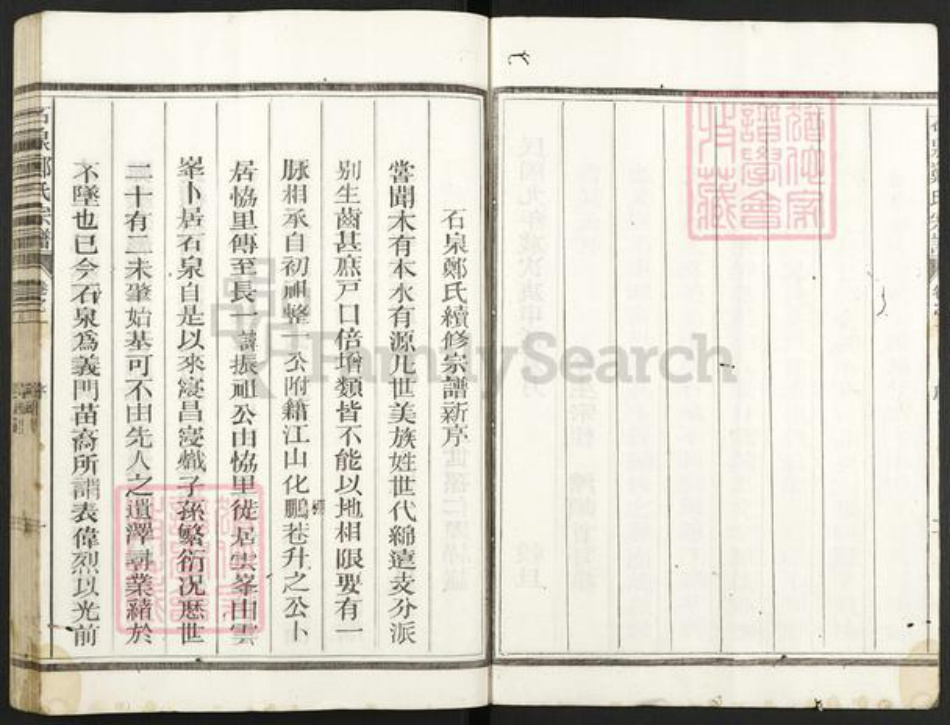 石泉鄭氏續修宗譜新序
嘗聞木有本水有源凡世美族姓世代綿遠支分派
別生齒甚庶戸口倍增類皆不能以地相限要有一
脉相承自初祖整公附籍江山化鵬巷升之公卜
居恊里傳至長一諱振祖公由恊里徙居雲峯由雲
峯卜居石泉自是以來寖昌寖熾子孫繁衍况歷世
二十有三未肇始基可不由先人之遺澤尋業緒於
不墜也已今石泉爲義門苗裔所謂表偉烈以光前
石泉鄭氏宗譜
序
FamilySearch